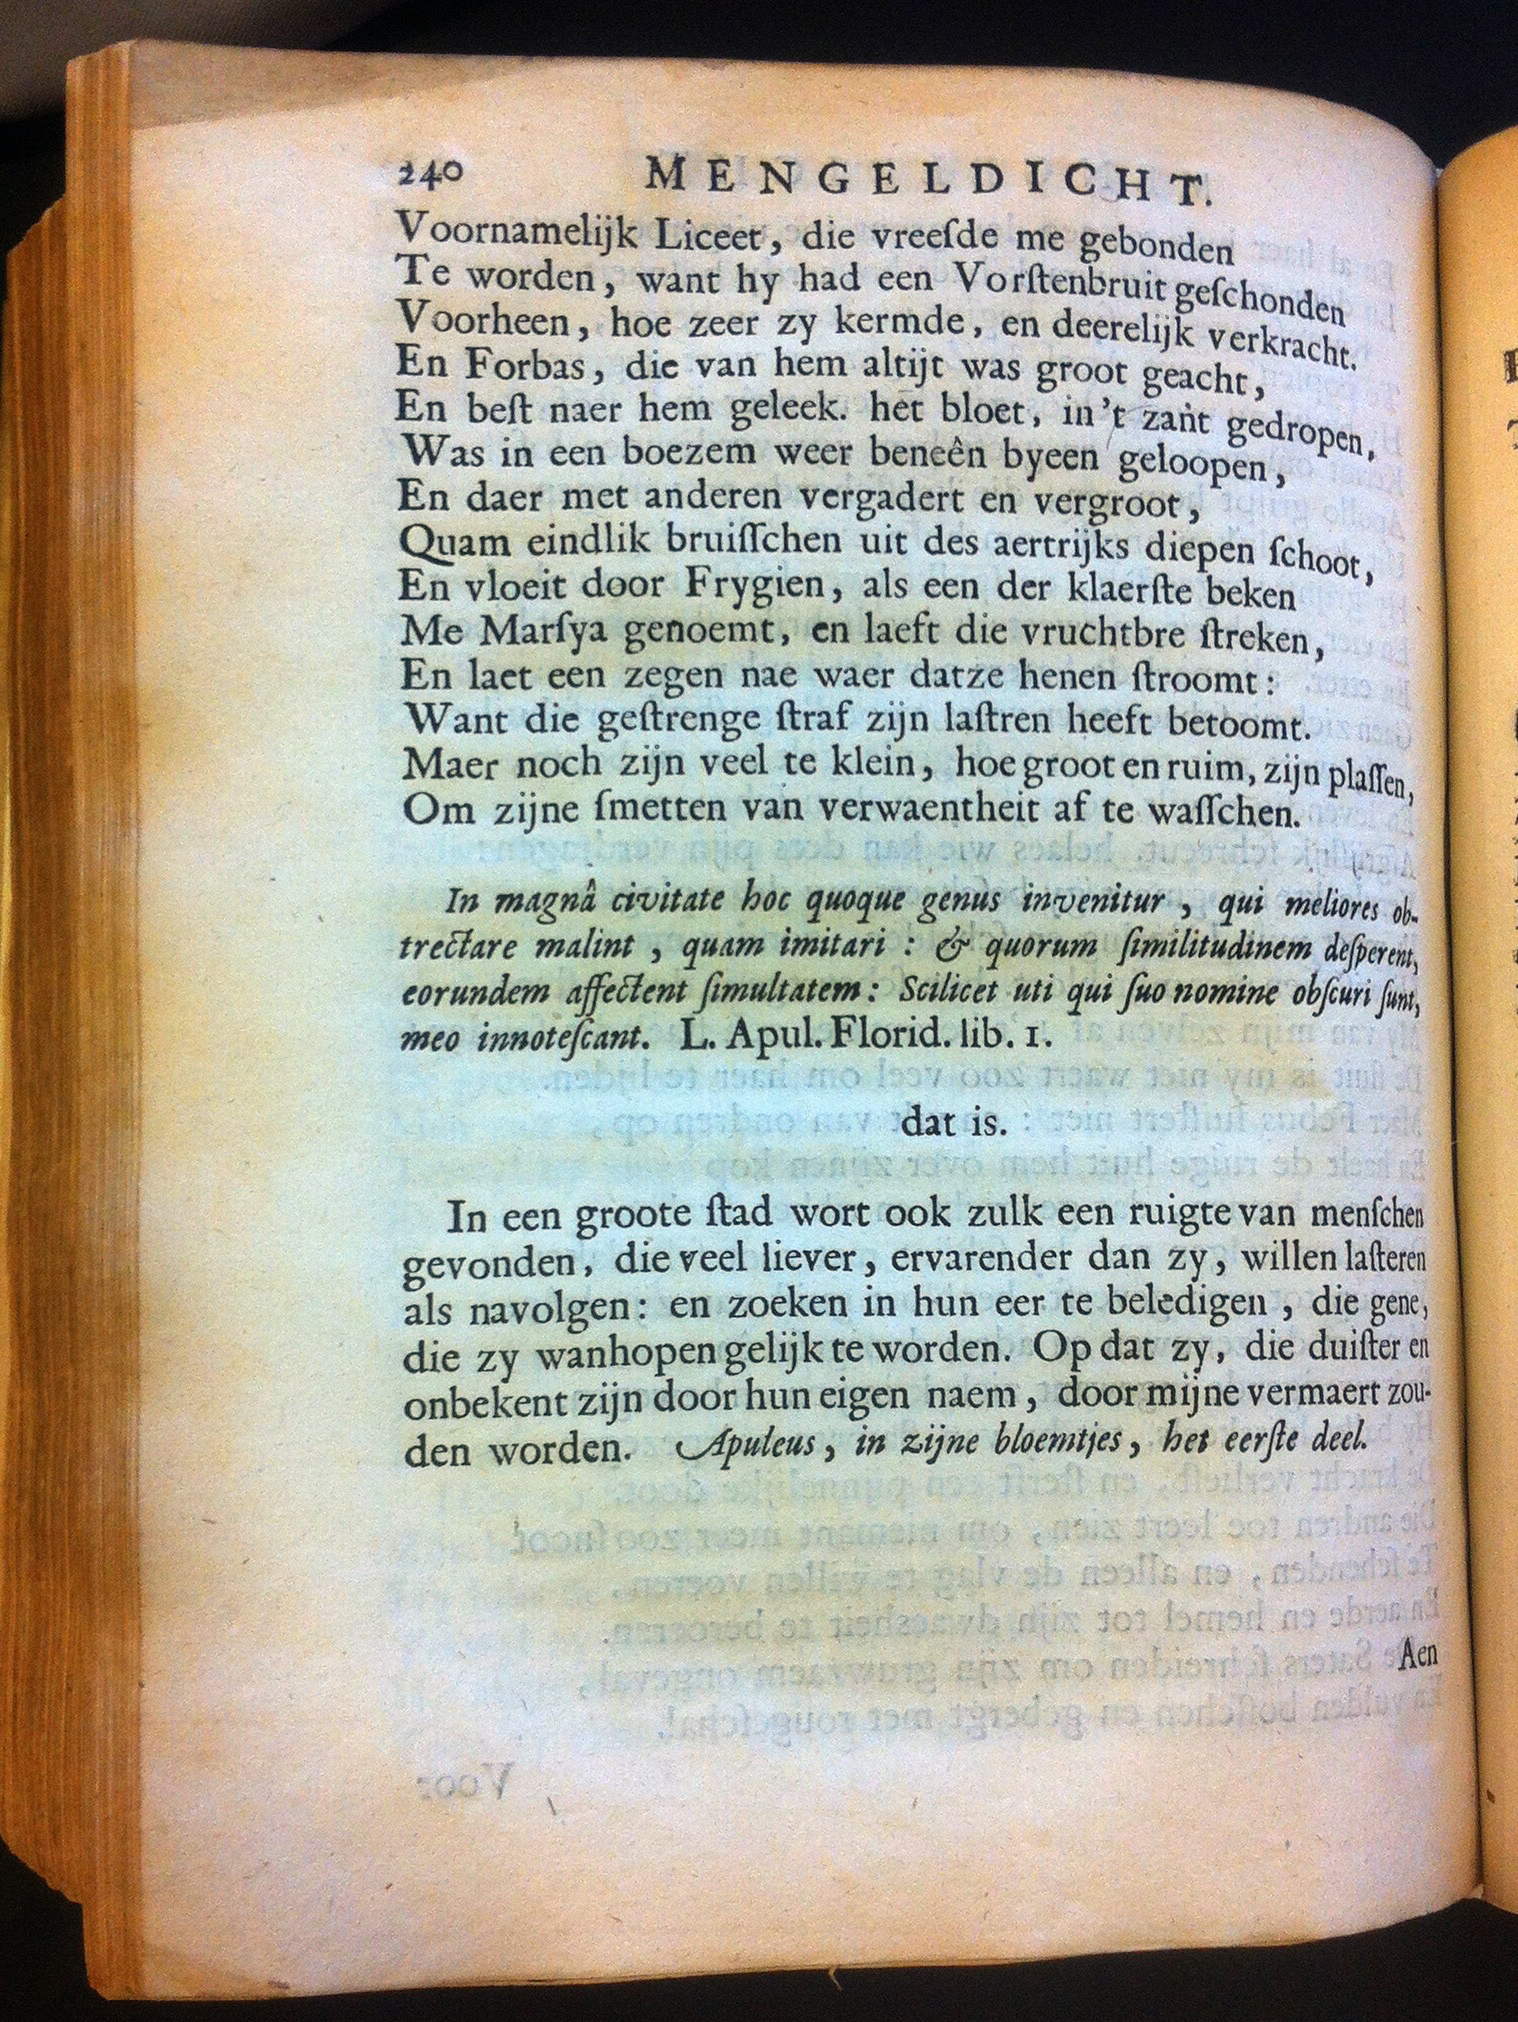 240 MENGELDICHT.
Voornamelijk Liceet, die vreeſde me gebonden
Te worden, want hy had een Vorſtenbruit geſchonden
Voorheen, hoe zeer zy kermde, en deerelijk verkracht.
En Forbas, die van hem altijt was groot geacht,
En beſt naer hem geleek. het bloet, in 't zant gedropen,
Was in een boezem weer beneên byeen geloopen,
En daer met anderen vergadert en vergroot,
Quam eindlik bruiſſchen uit des aertrijks diepen ſchoot,
En vloeit door Frygien, als een der klaerſte beken
Me Marſya genoemt, en laeft die vruchtbre ſtreken,
En laet een zegen nae waer datze henen ſtroomt:
Want die geſtrenge ſtraf zijn laſtren heeft betoomt.
Maer noch zijn veel te klein, hoe groot en ruim, zijn plaſſen,
Om zijne ſmetten van verwaentheit af te waſſchen.
In magnâ civitate hoc quoque genus invenitur, qui meliores ob-
trectare malint, quam imitari: & quorum ſimilitudinem deſperent,
eorundem affectent ſimultatem: Scilicet uti qui ſuo nomine obſcuri ſunt,
meo innoteſcant. L. Apul. Florid. lib. 1.
dat is.
In een groote ſtad wort ook zulk een ruigte van menſchen
gevonden, die veel liever, ervarender dan zy, willen laſteren
als navolgen: en zoeken in hun eer te beledigen, die gene,
die zy wanhopen gelijk te worden. Op dat zy, die duiſter en
onbekent zijn door hun eigen naem, door mijne vermaert zou-
den worden. Apuleus, in zijne bloemtjes, het eerſte deel.
Aen